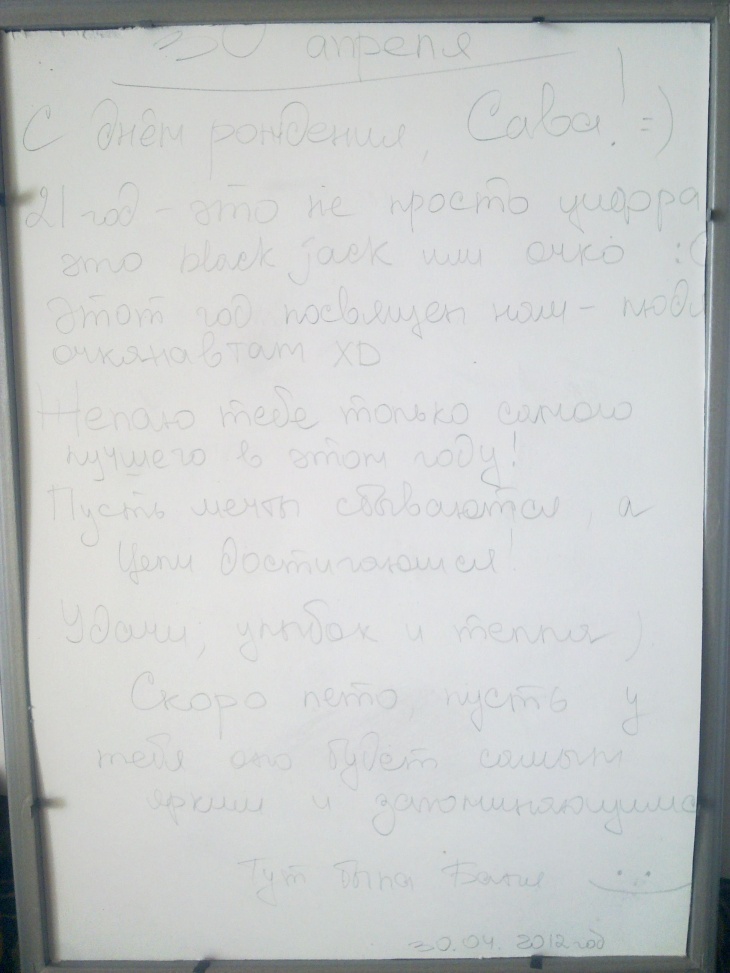 30 апреля
С днём рождения, Сава! =)
21 год - это не просто цифра
это black jack или очко :
Этот год посвящен нам - людя
очкянавтам XD
Желаю тебе только самого
лучшего в этом году!
Пусть мечты сбываются, а
Цели достигаются!
Удачи, улыбок и тепла)
Скоро лето, пусть у
тебя оно будет самым
ярким и запоминяющимс
Тут была
30.04. 2012 год